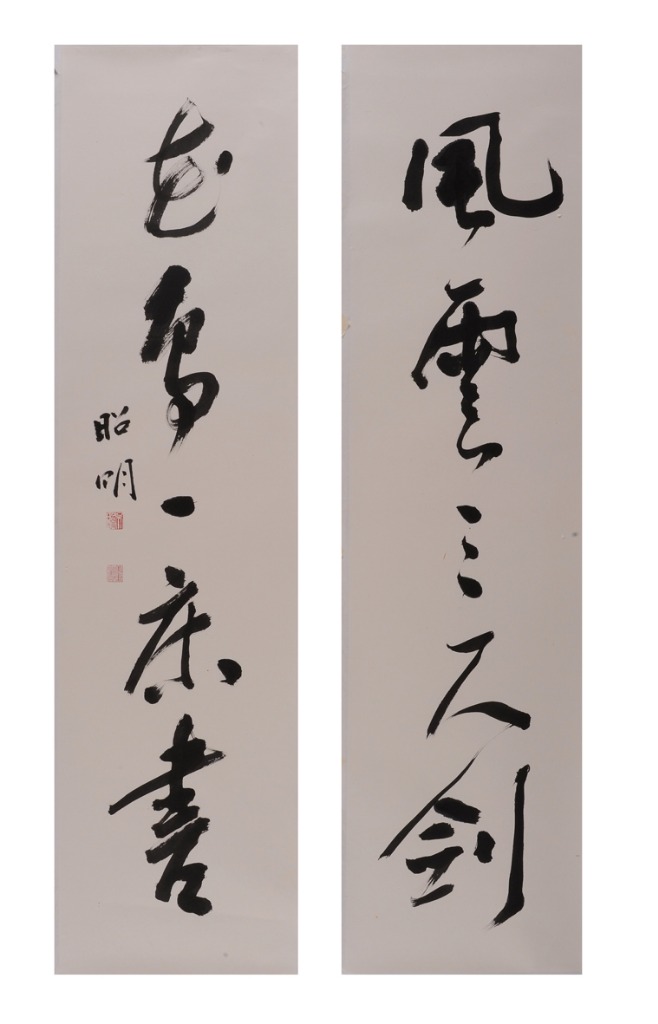 風雲三尺劍
花鳥一床書
昭明